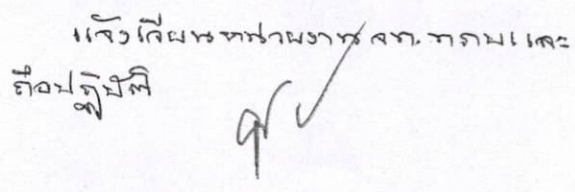 แจ้งเวียนหน่วยงาน จทา.ทราบและ
ถือปฏิบัติ